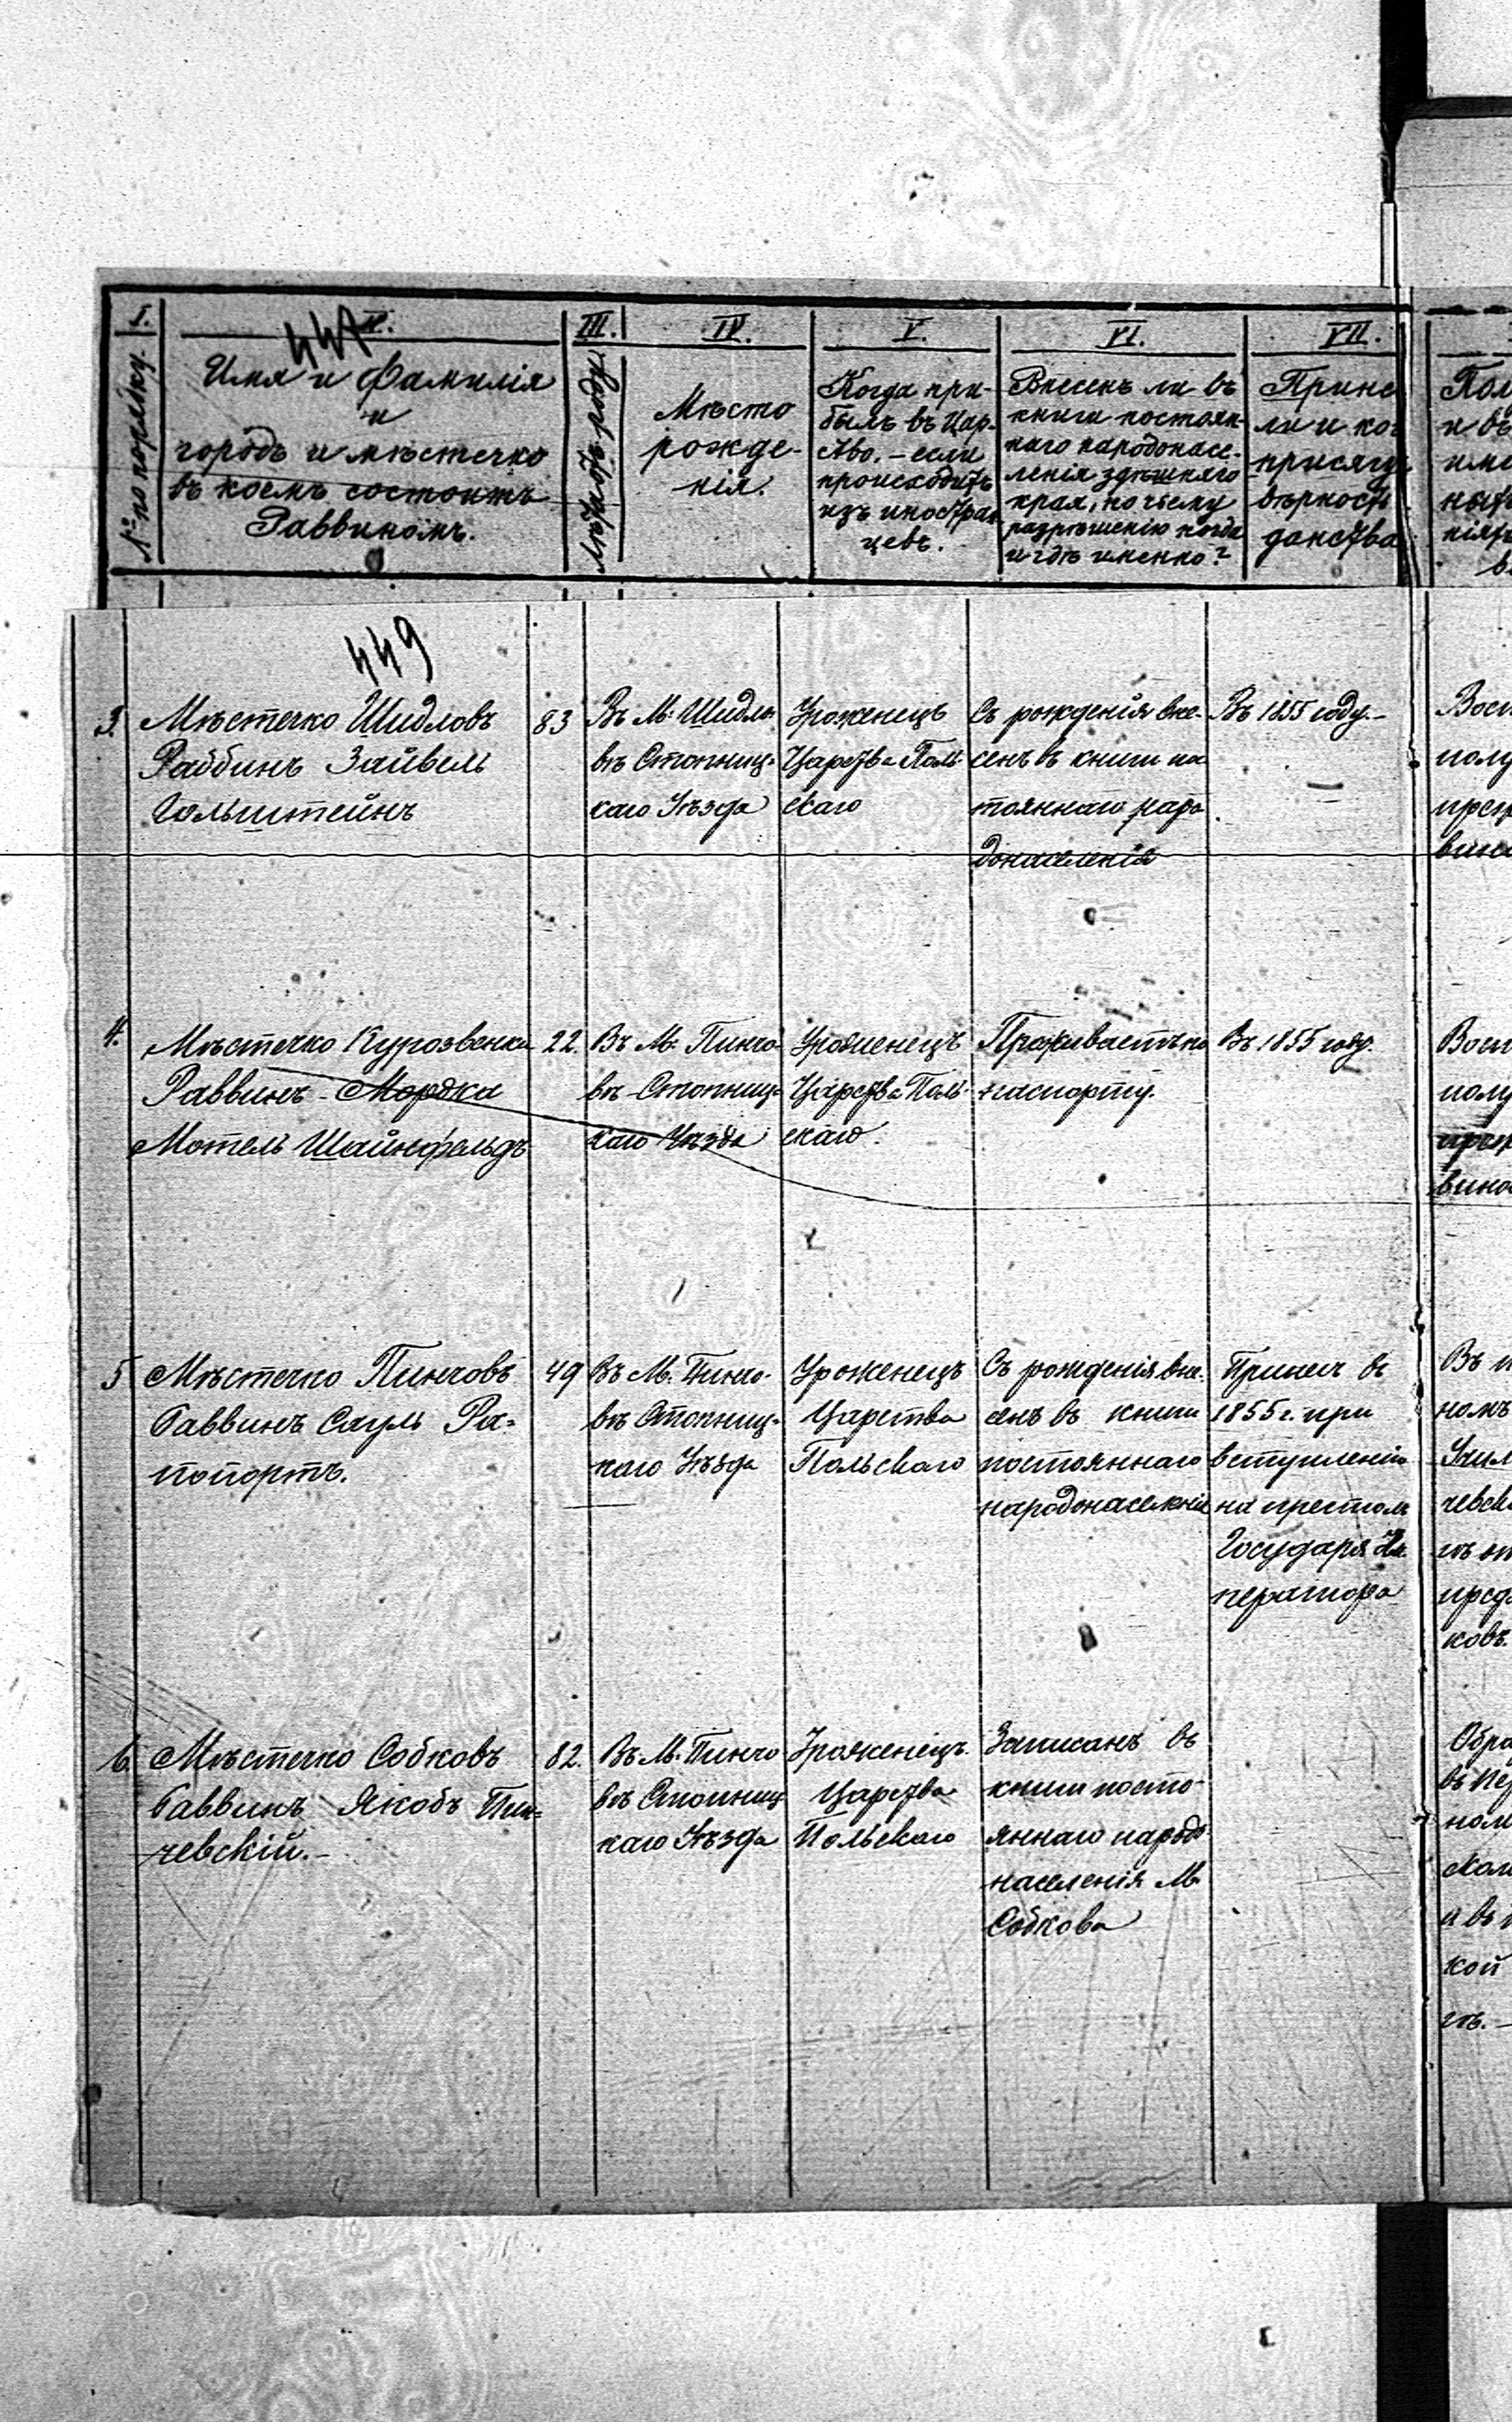 I.
№ по порядку.
447
II.
Имя и Фамилія
и
городъ и мѣстечко
въ коемъ состоитъ
Раввиномъ.
III.
IV.
Мѣсто
рожде-
нія.
V.
Когда при-
былъ въ Цар-
ство. – если
происходитъ
изъ иностран
цевъ.
VI.
Внесенъ ли въ
книги постоян-
наго народонасе-
ленія здѣшняго
края, по чьему
разрѣшенію когда
и гдѣ именно?
VII.
Прине
ли и ко
присягу
вѣрност
данства
449
3.
Мѣстечко Шидловъ
Раббинъ Зайвель
Гольштейнъ
83
Въ М: Шидло
вѣ Стопниц-
каго Уѣзда
Уроженецъ
Царства Поль-
скаго
Съ рожденія вне-
сенъ въ книги по
тояннаго наро
донаселенія
Въ 1855 году.–
4.
Мѣстечко Курозвенки
Раввинъ – Мордка
Мотель Шайнфельдъ
22.
Въ М. Пинчо-
вѣ – Стопниц-
каго Уѣзда
Уроженецъ
Царства Поль-
скаго.
Проживаетъ по
паспорту.
Въ 1855 году.
5
Мѣстечко Пинчовъ
Раввинъ Сауль Ра-
попортъ.
49
Въ М. Пинчо-
вѣ Стопниц-
каго Уѣзда
Уроженецъ
Царства
Польскаго
Съ рожденія вне-
сенъ въ книги
постояннаго
народонаселенія
Принес въ
1855 г. при
вступленіи
на престолъ
Государя Им
ператора
6.
Мѣстечко Собковъ
Раввинъ Якобъ Пин-
чевскій.–
82.
Въ М. Пинчо
вѣ Стопниц
каго Уѣзда
Уроженецъ.
Царства
Польскаго
Записанъ въ
книги посто-
яннаго народо-
населенія М.
Собкова